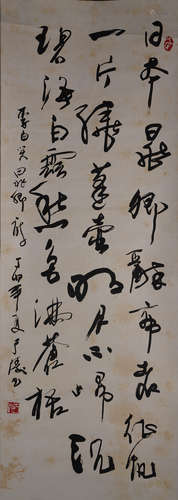 日本晁卿辭帝都征帆
一片繞蓬壺明月不歸沉
碧海白雲愁色滿蒼梧
李白哭晁卿 丁卯年夏